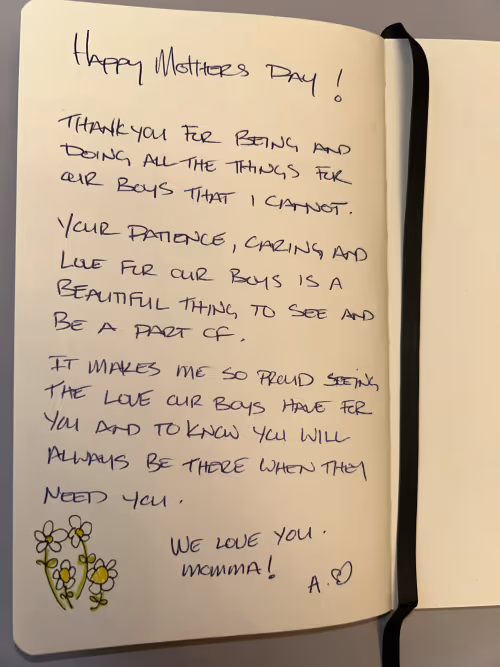 Happy Mothers Day!
THANKYOU FOR BEING AND
DOING ALL THE THINGS FOR
OUR BOYS THAT I CANNOT.
YOUR PATIENCE, CARING AND
LOVE FOR OUR BOYS IS A
BEAUTIFUL THING TO SEE AND
BE A PART OF.
IT MAKES ME SO PROUD SEEING
THE LOVE OUR BOYS HAVE FOR
YOU AND TO KNOW YOU WILL
ALWAYS BE THERE WHEN THEY
NEED YOU.
WE LOVE YOU.
MOMMA!
A.